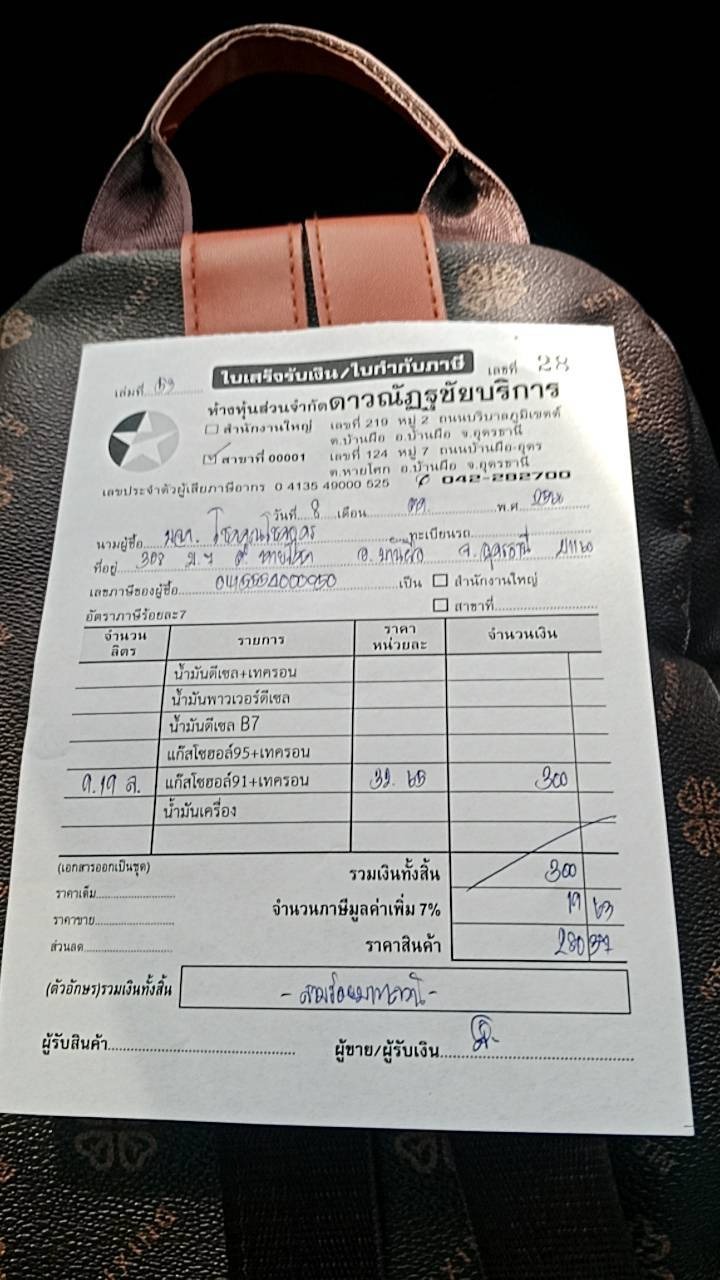 ใบเสร็จรับเงิน/ใบกำกับภาษี
เล่มที่ เลขที่ 28
ห้างหุ้นส่วนจำกัดดาวณัฏฐชัยบริการ
สำนักงานใหญ่ เลขที่ 219 หมู่ 2 ถนนบริบาลภูมิเขตต์
ต.บ้านผือ อ.บ้านผือ จ.อุดรธานี
สาขาที่ 00001 เลขที่ 124 หมู่ 7 ถนนบ้านผือ-อุดร
ต.หายโศก อ.บ้านผือ จ.อุดรธานี
เลขประจำตัวผู้เสียภาษีอากร 0 4135 49000 525 042-282700
วันที่ 8 เดือน พ.ศ.
นามผู้ซื้อ ทะเบียนรถ
ที่อยู่ 308 ต. หายโศก อ. บ้านผือ จ. อุดรธานี 41160
เลขภาษีของผู้ซื้อ เป็น สำนักงานใหญ่
อัตราภาษีร้อยละ7 สาขาที่
จำนวนลิตร รายการ ราคาหน่วยละ จำนวนเงิน
น้ำมันดีเซล+เทครอน
น้ำมันพาวเวอร์ดีเซล
น้ำมันดีเซล B7
แก๊สโซฮอล์95+เทครอน
9.19 ล. แก๊สโซฮอล์91+เทครอน 32.65 300
น้ำมันเครื่อง
(เอกสารออกเป็นชุด) รวมเงินทั้งสิ้น 300
ราคาเต็ม
จำนวนภาษีมูลค่าเพิ่ม 7% 19 63
ราคาขาย
ส่วนลด ราคาสินค้า 280 37
(ตัวอักษร)รวมเงินทั้งสิ้น - สามร้อยบาทถ้วน -
ผู้รับสินค้า ผู้ขาย/ผู้รับเงิน